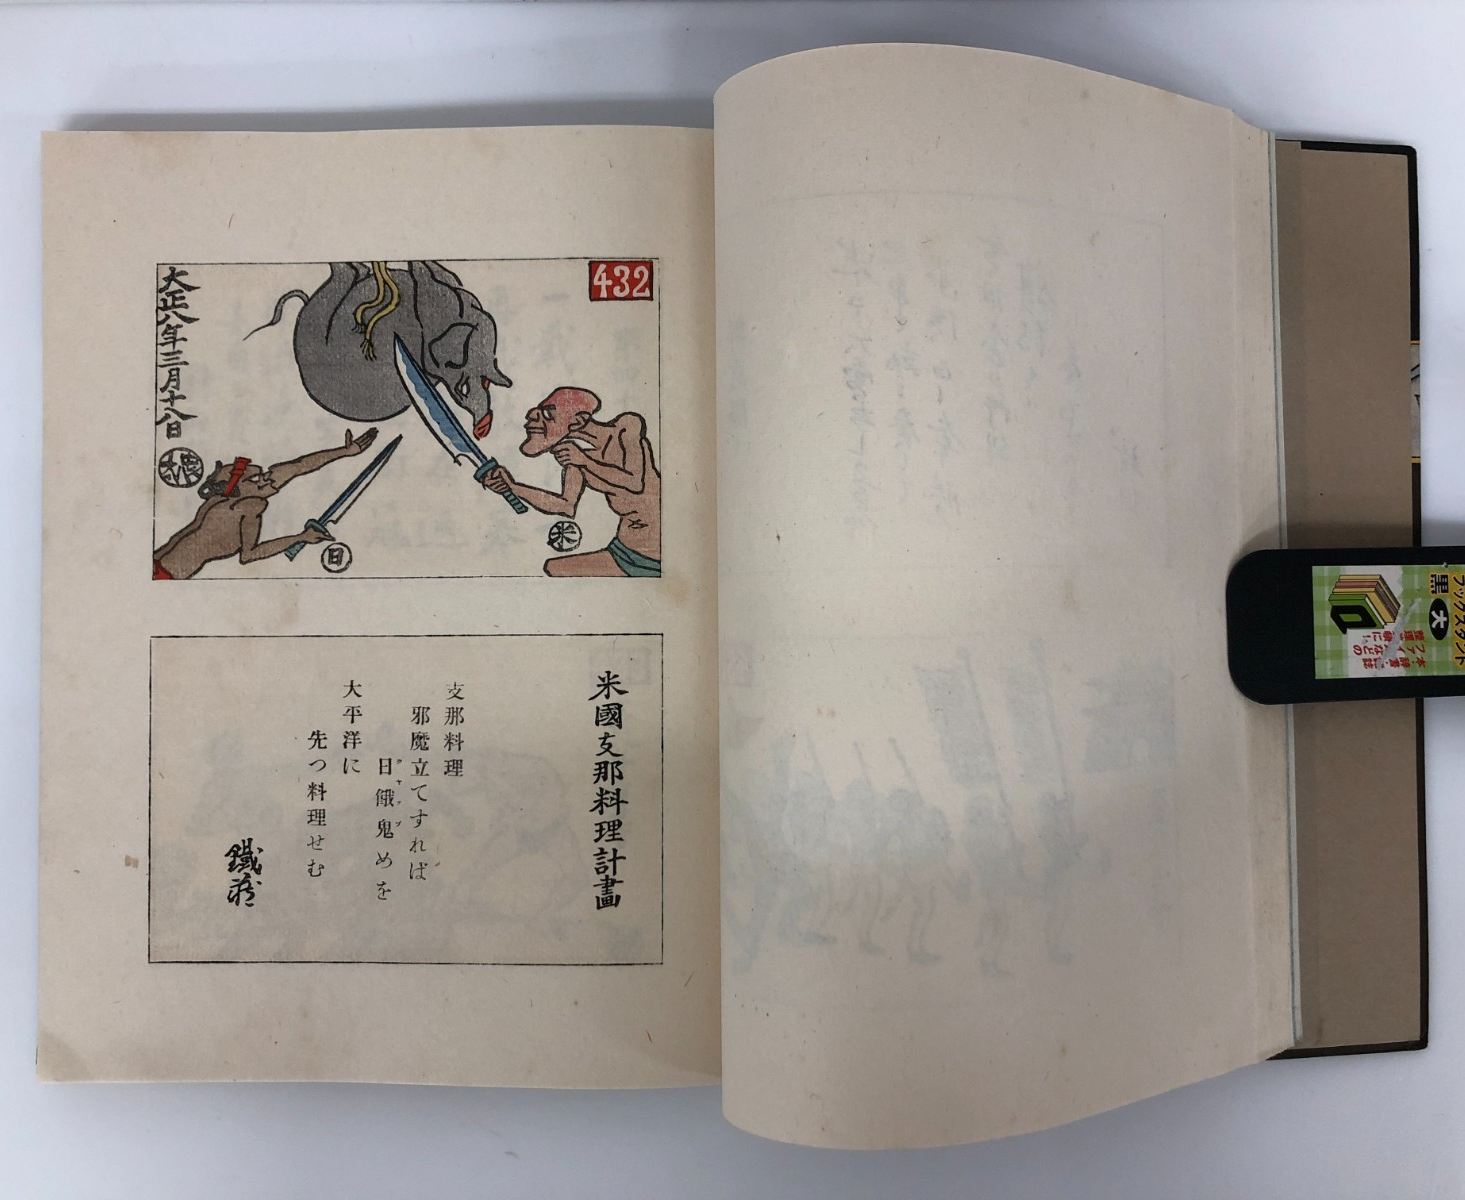 432
大正八年三月十八日
日
米
米國支那料理計畫
支那料理
邪魔立てすれば
日餓鬼めを
ヂャップ
大平洋に
先つ料理せむ
ブックスタンド
黒
大
本・辞書・雑誌
ファイルなどの
整理・整頓に!